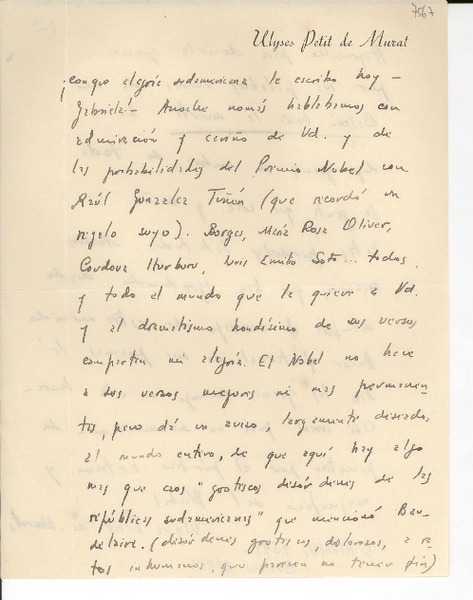 7567
Ulyses Petit de Murat
¡Con qué alegría sudamericana le escribo hoy –
Gabriela! – Anoche nomás hablábamos con
admiración y cariño de Ud. y de
las probabilidades del Premio Nobel con
Raúl González Tuñón (que recordó un
regalo suyo). Borges, María Rosa Oliver,
Cordova Iturburu, Luis Emilio Soto... todos
y todo el mundo que la quiere a Ud.
y al dramatismo hondísimo de sus versos
comparten mi alegría. El Nobel no hace
a sus versos mejores ni más permanen-
tes, pero dá un aviso, largamente deseado,
al mundo entero, de que aquí hay algo
más que esos "grotescos desórdenes de las
repúblicas sudamericanas" que mencionó Bau-
delaire. (desórdenes grotescos, dolorosos, a ra-
tos inhumanos, que parecen no tener fin)